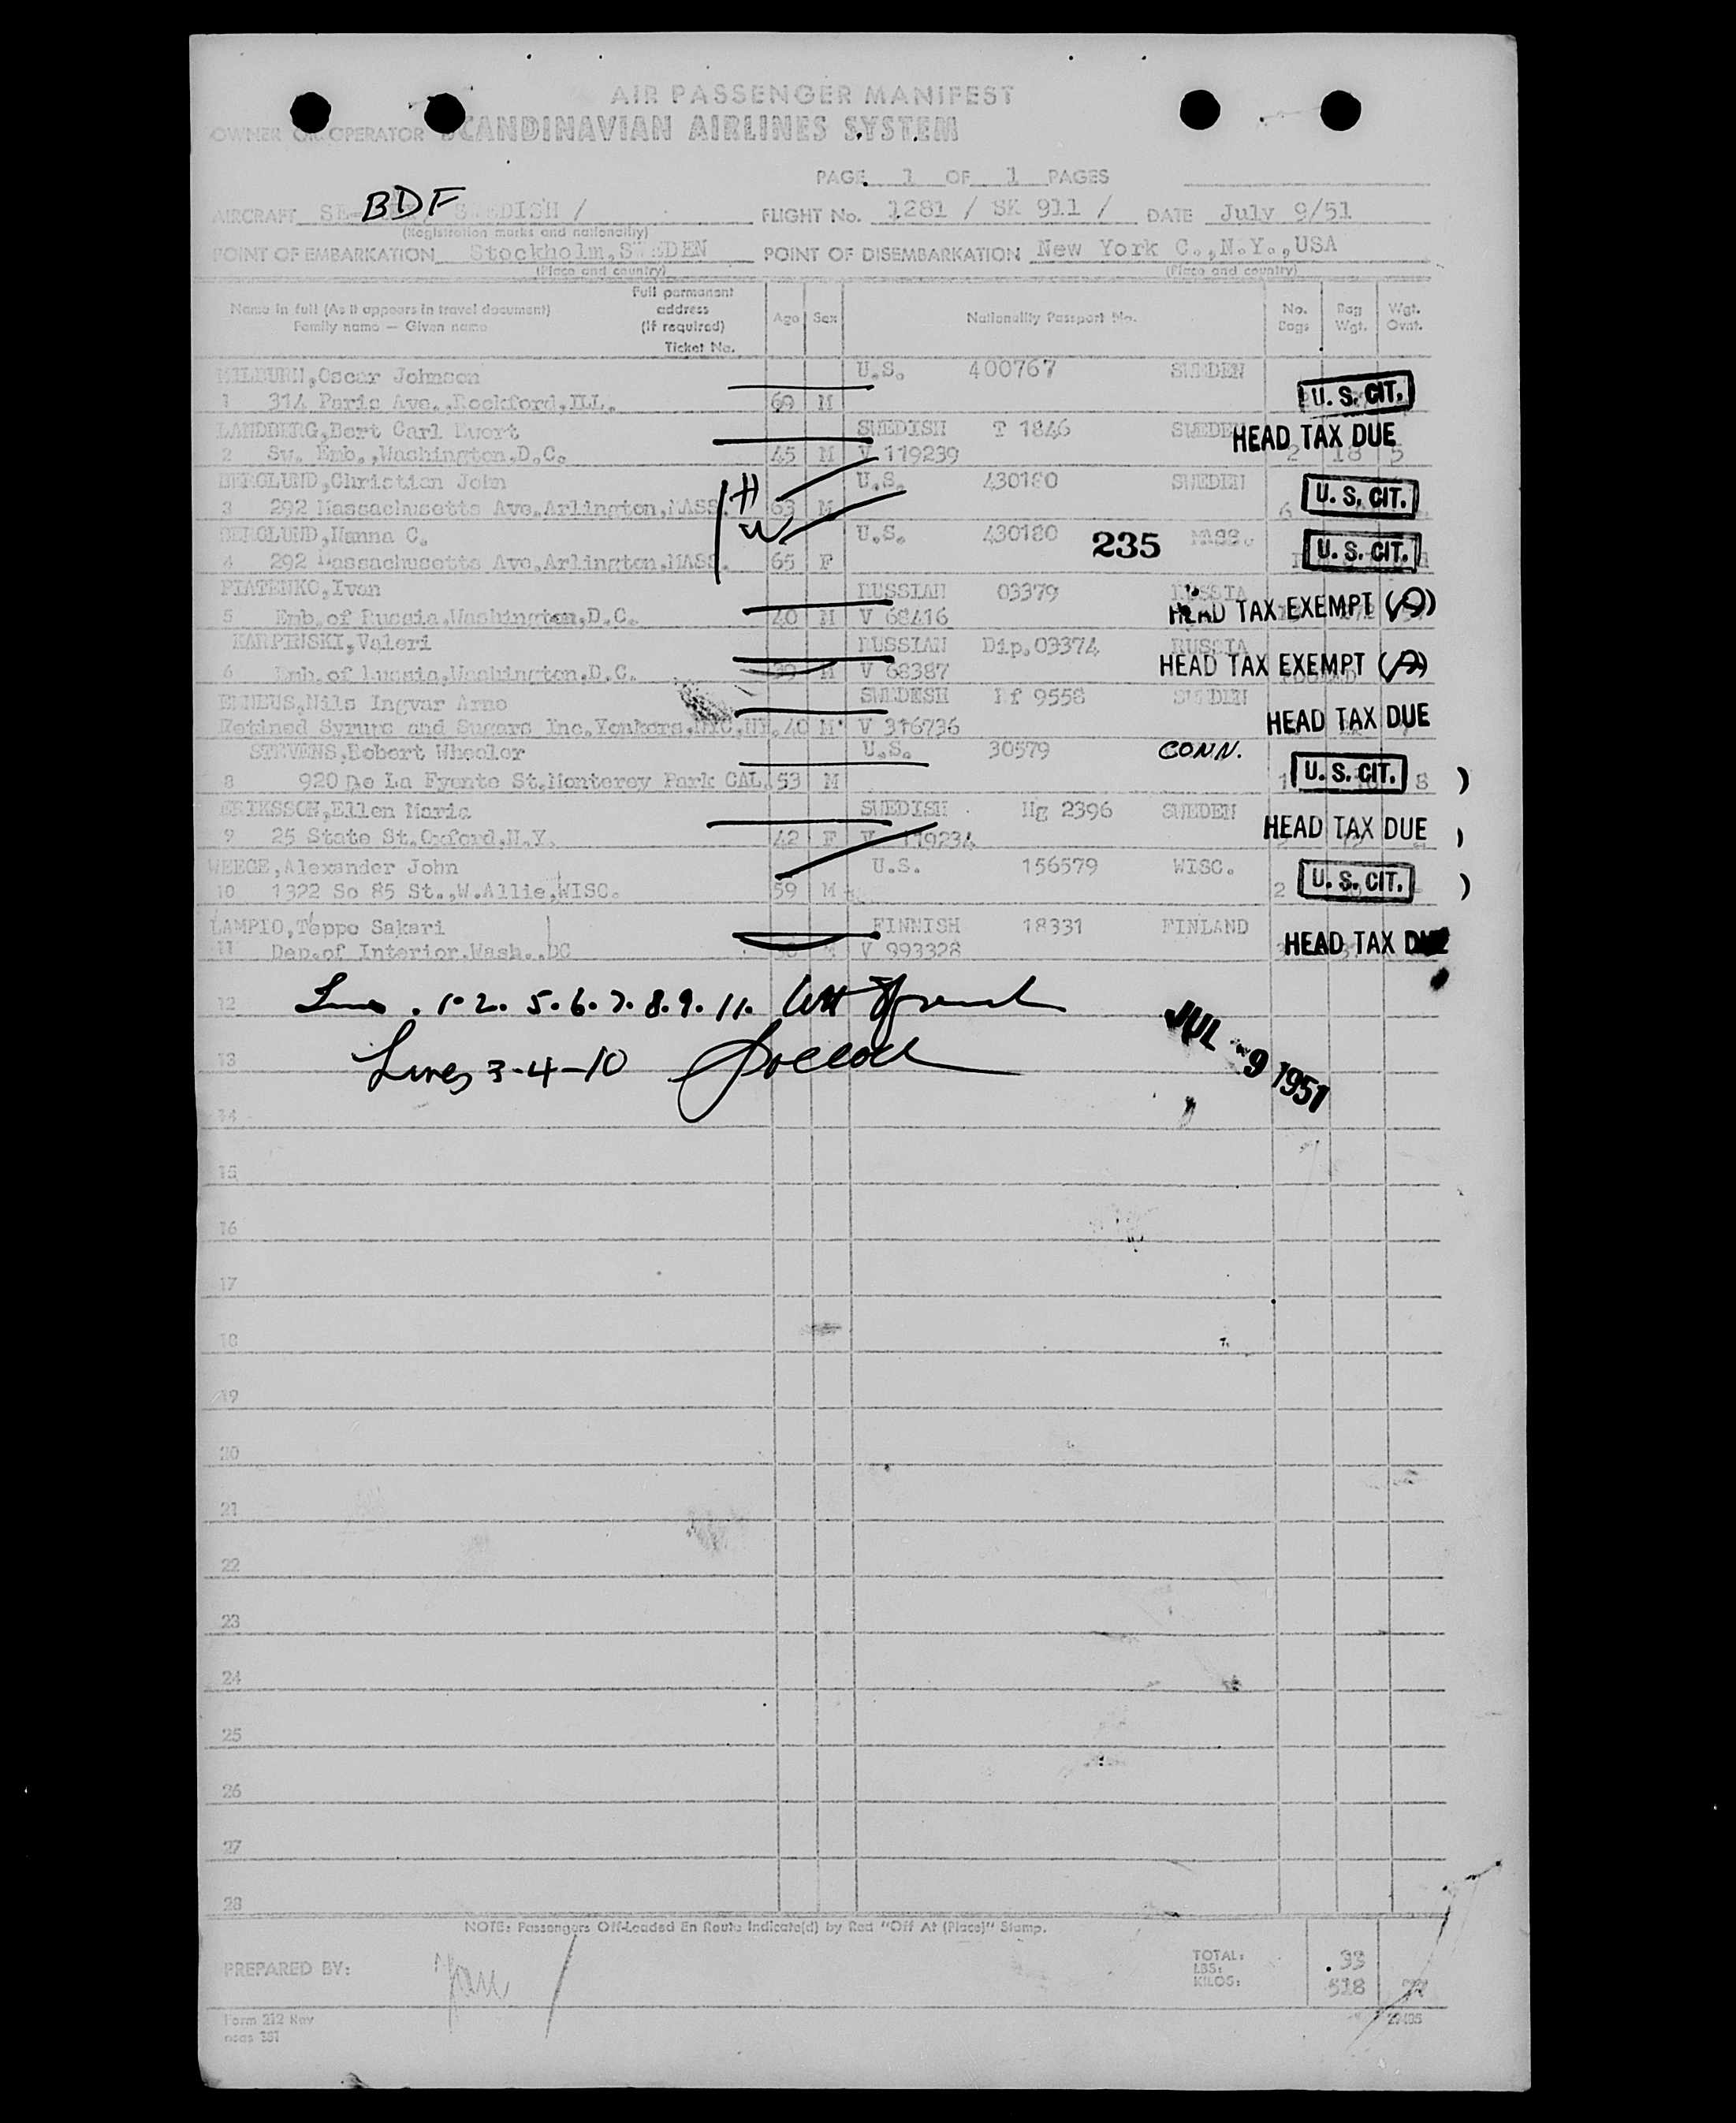 AIR PASSENGER MANIFEST
OWNER OR OPERATOR SCANDINAVIAN AIRLINES SYSTEM
PAGE 1 OF 1 PAGES
AIRCRAFT SE- BDF SWEDISH / FLIGHT No. 1281 / SK 911 / DATE July 9/51
(Registration marks and nationality)
POINT OF EMBARKATION Stockholm,SWEDEN POINT OF DISEMBARKATION New York C.,N.Y.,USA
(Place and country) (Place and country)
Name in full (As it appears in travel document) Family name — Given name Full permanent address (If required) Ticket No. Age Sex Nationality Passport No. No. Bags Bag Wgt. Wgt. Ovnt.
MILBURN,Oscar Johnson U.S. 400767 SWEDEN
1 314 Paris Ave.,Rockford,ILL. 69 M U. S. CIT.
LANDBERG,Bert Carl Evert SWEDISH T 1846 SWEDEN HEAD TAX DUE
2 Sw. Emb.,Washington,D.C. 45 M V 119239 2 18 5
BERGLUND,Christian John H U.S. 430180 SWEDEN U. S. CIT.
3 292 Massachusetts Ave.Arlington,MASS. 63 M 6
BERGLUND,Hanna C. W U.S. 430180 235 MASS. U. S. CIT.
4 292 Massachusetts Ave.Arlington.MASS. 65 F
PIATENKO,Ivan RUSSIAN 03379 RUSSIA
5 Emb.of Russia,Washington,D.C. 40 M V 68416 HEAD TAX EXEMPT
KARPINSKI,Valeri RUSSIAN Dip.03374 RUSSIA
6 Emb.of Russia,Washington,D.C. 39 M V 68387 HEAD TAX EXEMPT
Nils Ingvar Arne SWEDESH 9558 SWEDEN
Refined Syrups and Sugars Inc.Yonkers,NYC,NY. 40 M V 316736 HEAD TAX DUE
STEVENS,Robert Wheeler U.S. 30579 CONN.
8 920 De La Fyente St.Monterey Park CAL. 53 M 1 U. S. CIT. 8 )
ERIKSSON,Ellen Maria SWEDISH Hg 2396 SWEDEN
9 25 State St.Oxford,N.Y. 42 F V 119234 HEAD TAX DUE )
WEEGE,Alexander John U.S. 156579 WISC.
10 1322 So 85 St.,W.Allie,WISC. 59 M 2 U. S. CIT. )
LAMPIO,Teppo Sakari FINNISH 18331 FINLAND
11 Dep.of Interior.Wash.,DC M V 993328 HEAD TAX DUE
12 1. 2. 5. 6. 7. 8. 9. 11.
13 Lines 3-4-10 JUL -9 1951
14
15
16
17
18
19
20
21
22
23
24
25
26
27
28
NOTE: Passengers Off-Loaded En Route Indicate(d) by Red "Off At (Place)" Stamp.
PREPARED BY: TOTAL: LBS: KILOS: 33 518
Form 212 Nov